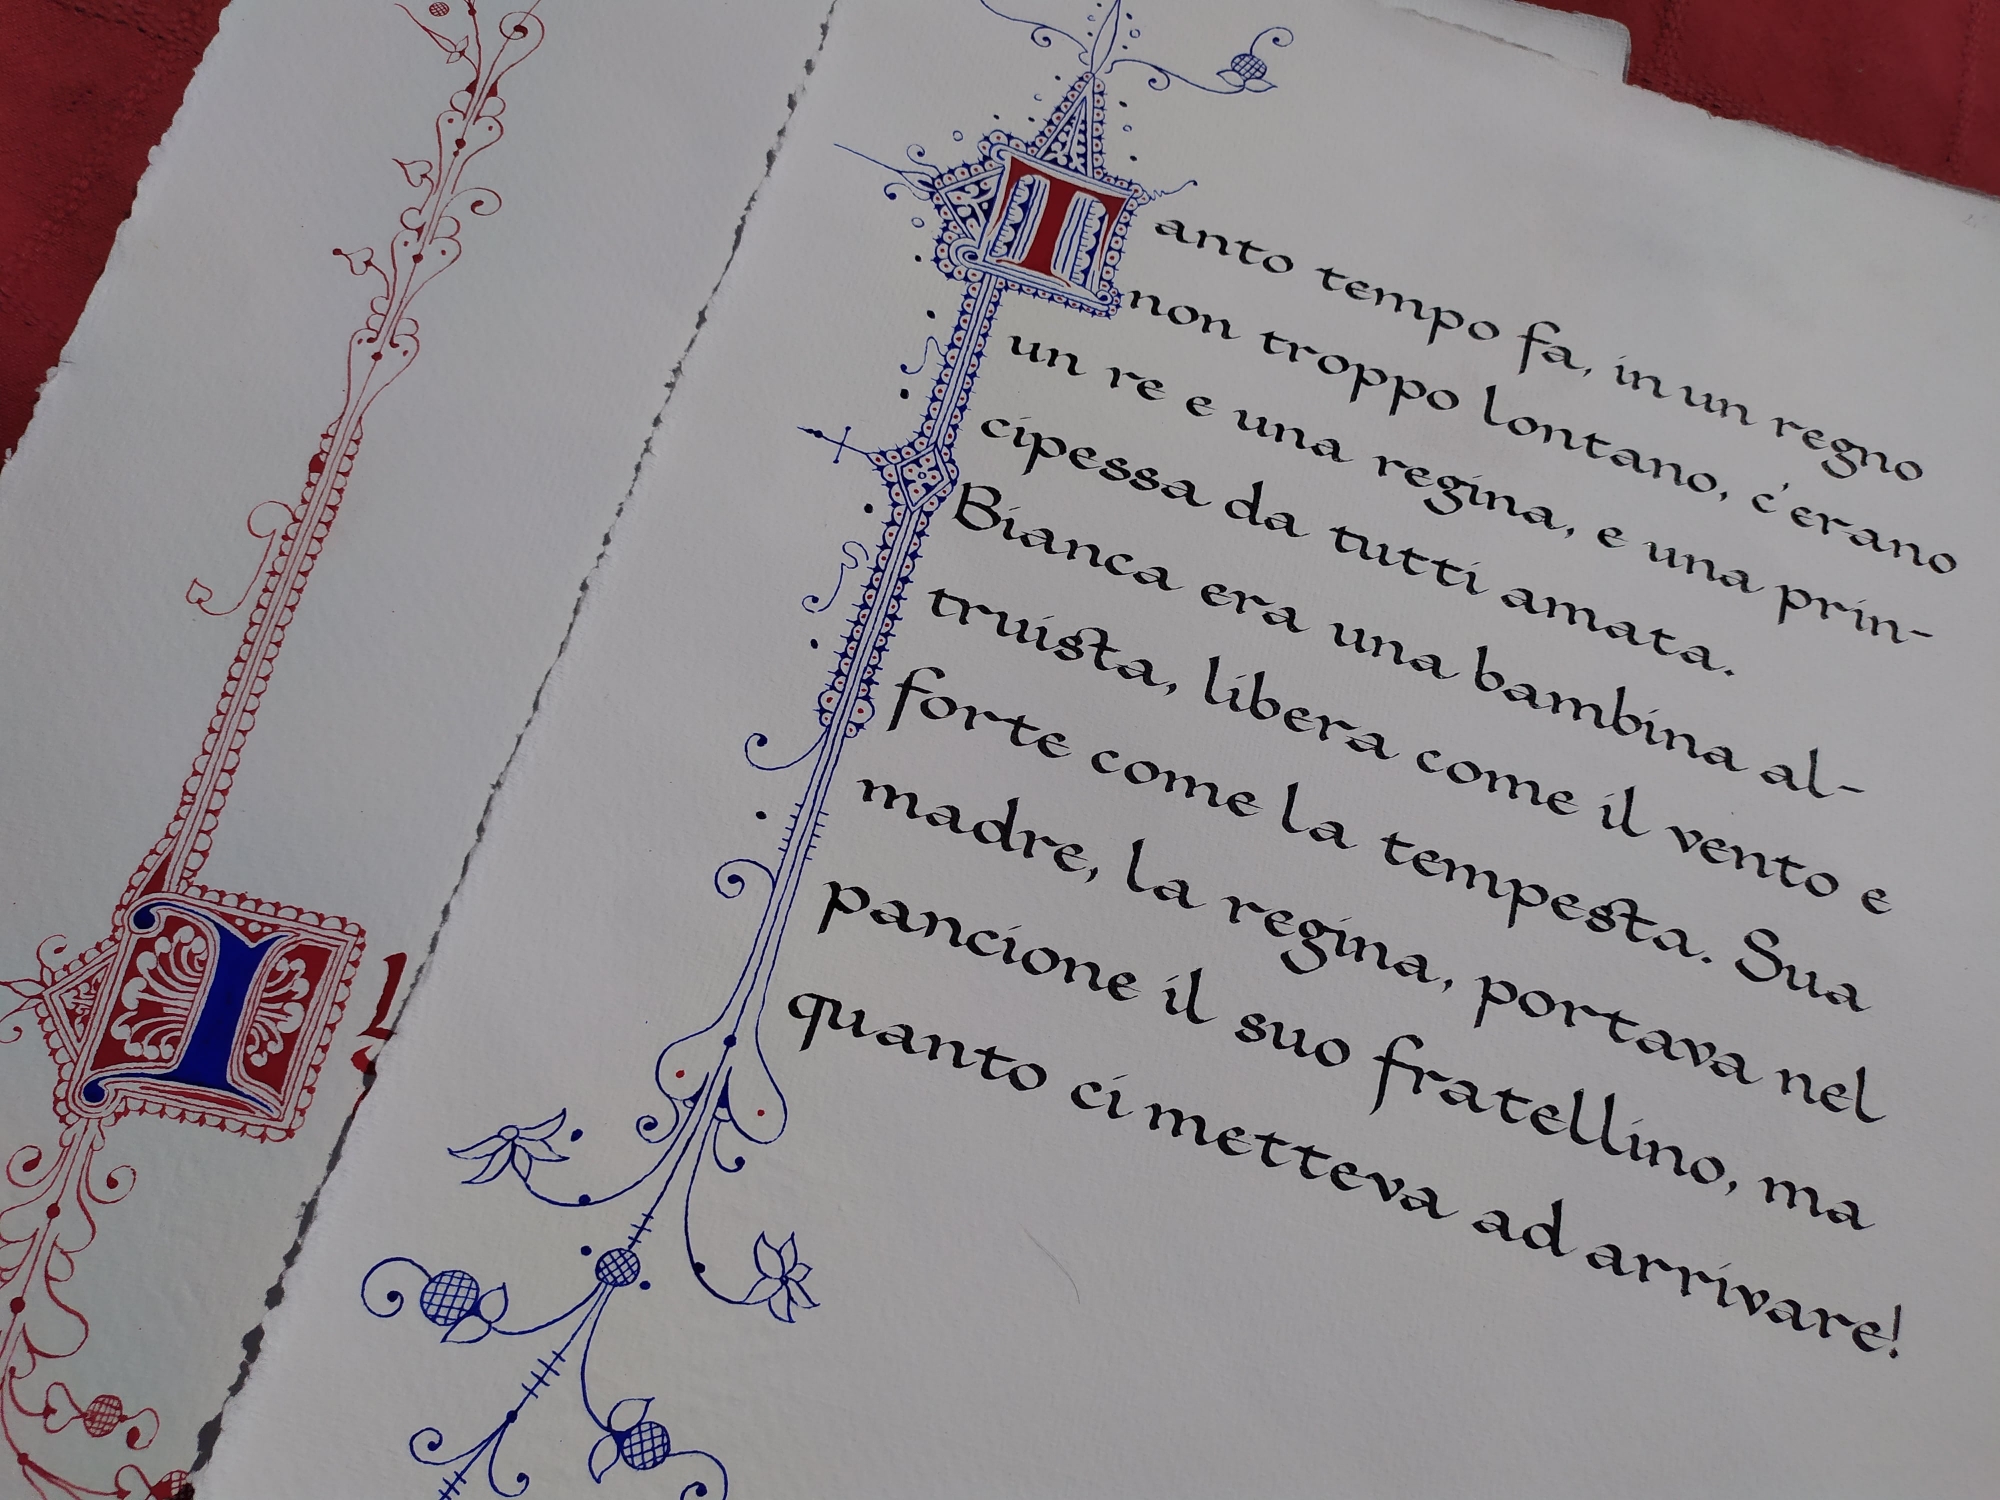 Tanto tempo fa, in un regno
non troppo lontano, c'erano
un re e una regina, e una prin-
cipessa da tutti amata.
Bianca era una bambina al-
truista, libera come il vento e
forte come la tempesta. Sua
madre, la regina, portava nel
pancione il suo fratellino, ma
quanto ci metteva ad arrivare!
I